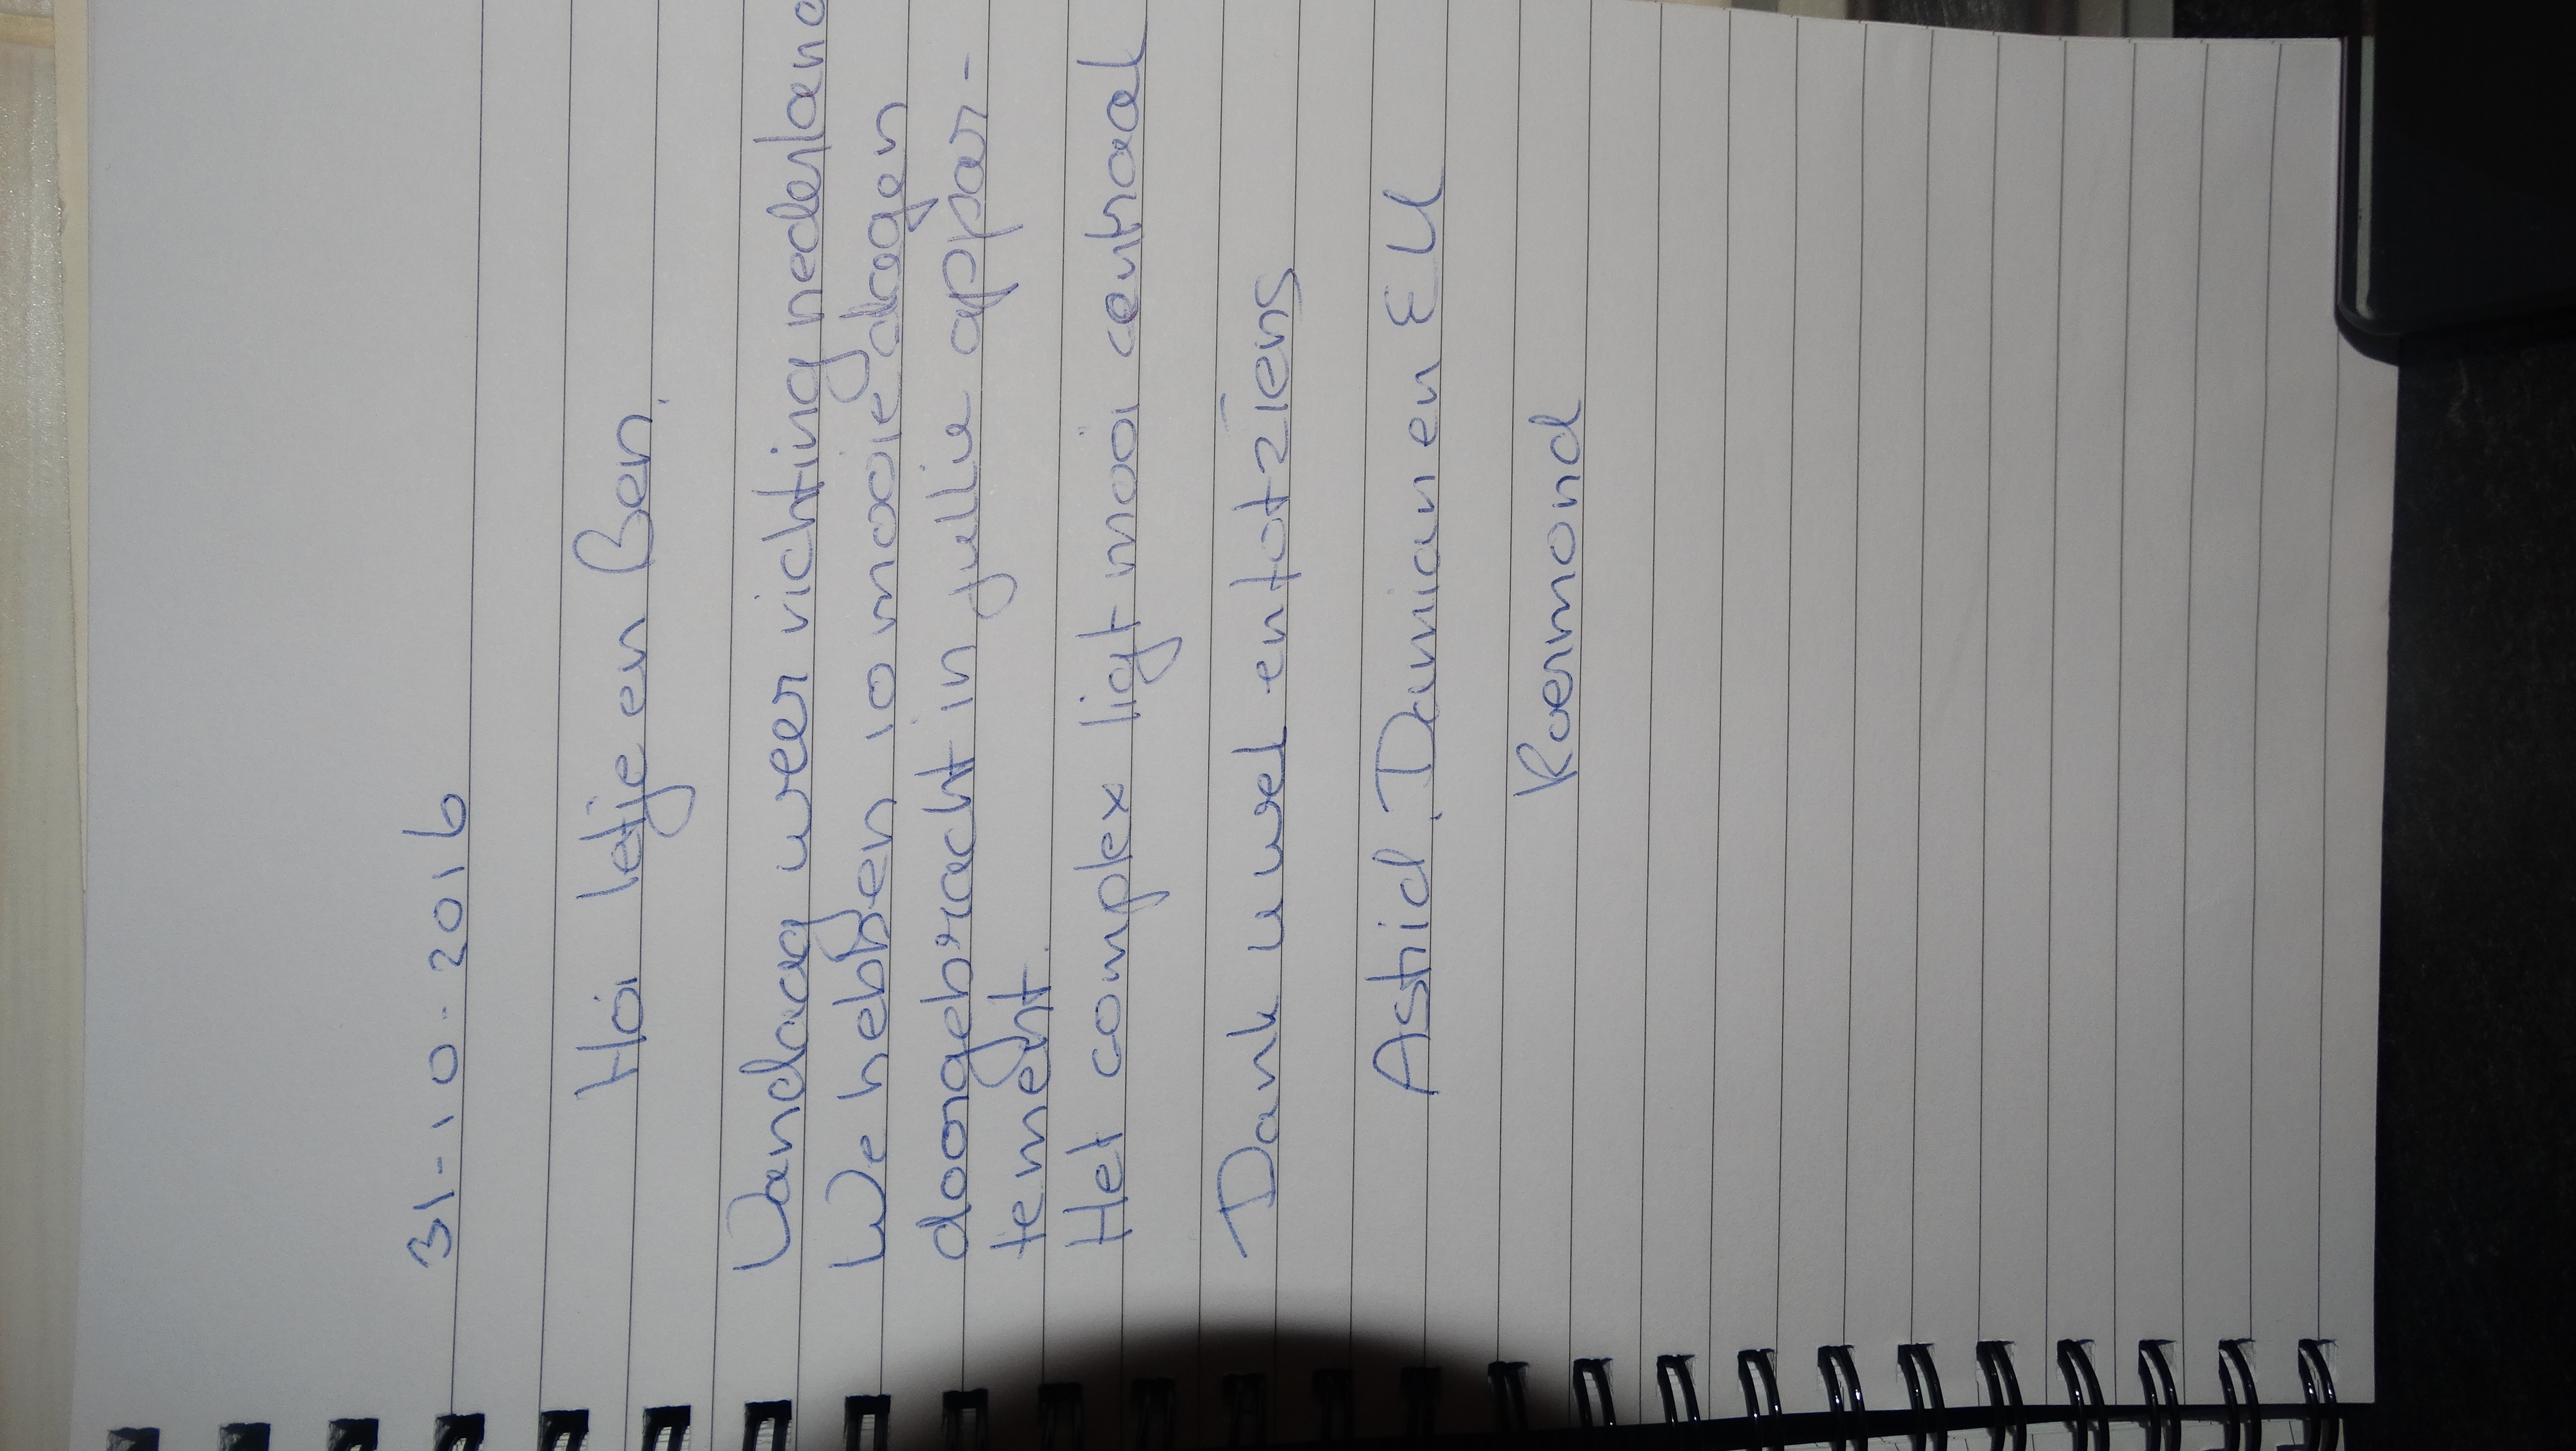 31-10-2016
Hoi Ietje en Ben.
Vandaag weer richting nederland
We hebben 10 mooie dagen
doorgebracht in jullie appar-
tement.
Het complex ligt mooi centraal
Dank u wel entotziens
Astrid, Damian en Ell
Roermond